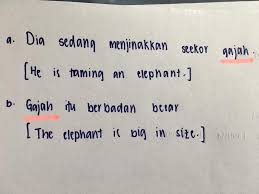 a. Dia sedang menjinakkan seekor gajah.
[He is taming an elephant.]
b. Gajah itu berbadan besar
[The elephant is big in size.]